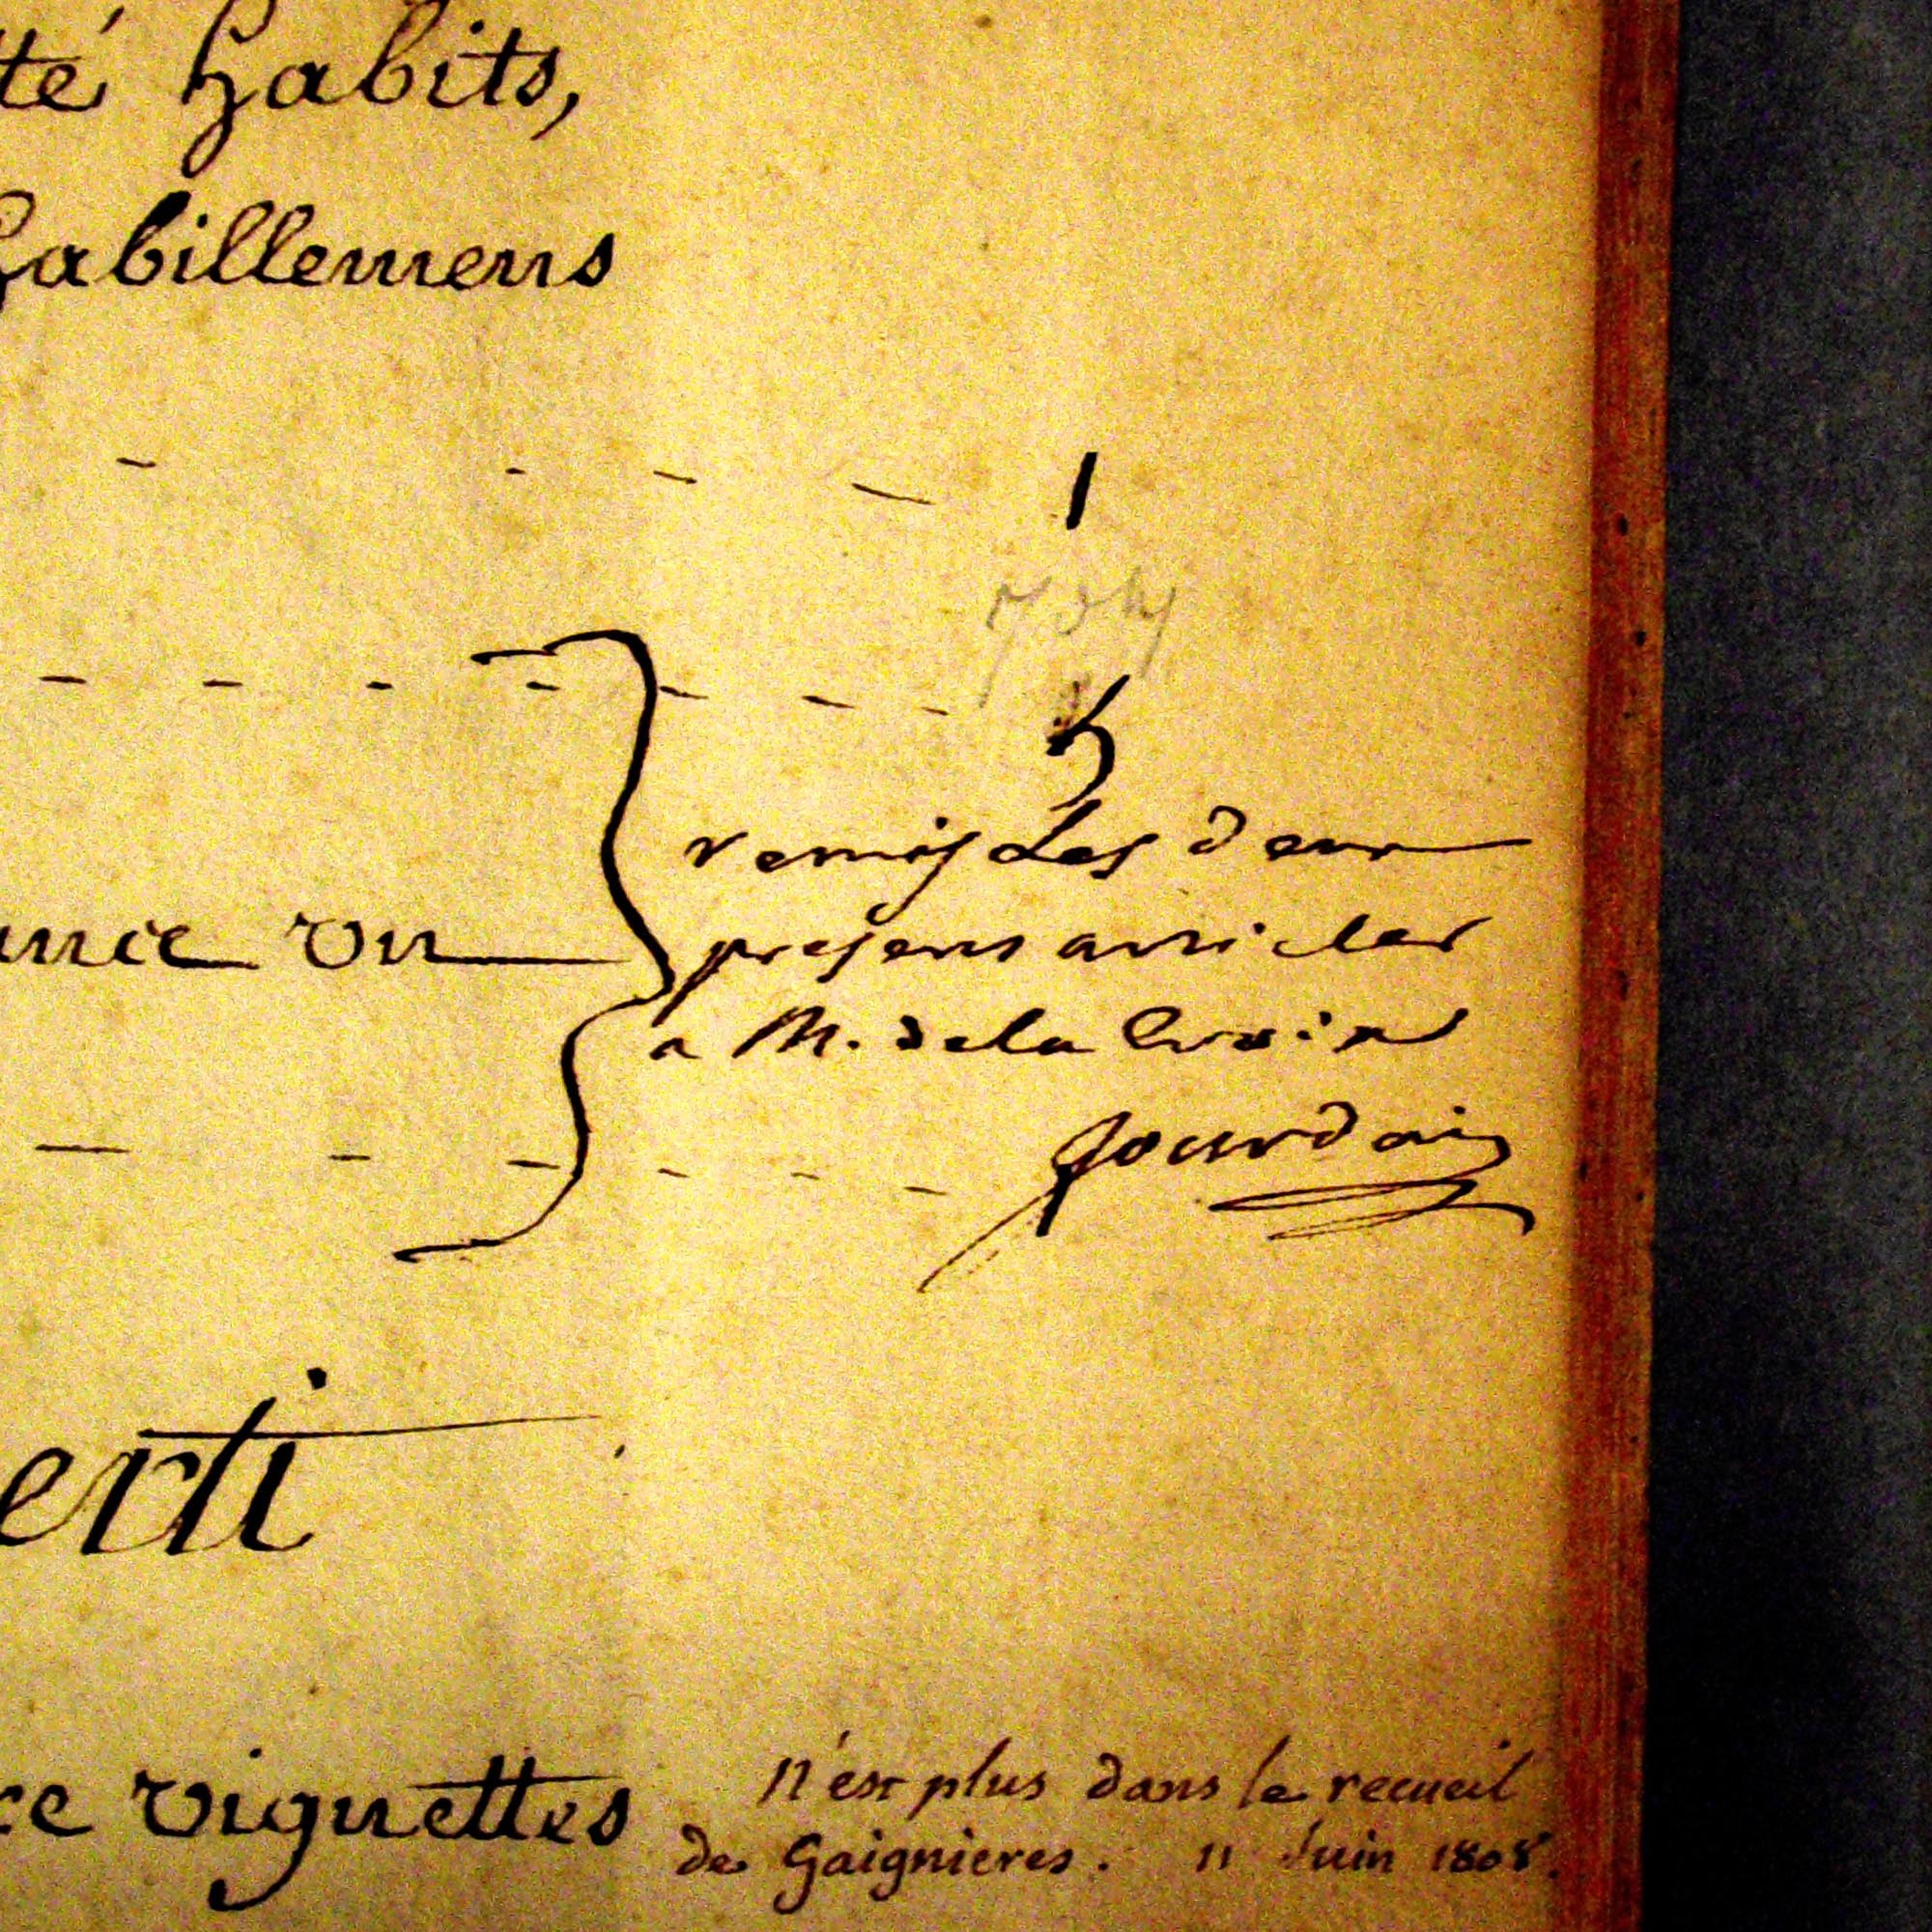 té habits,
habillemens
1
5
remis Les deux
presens articles
ance un
a M. de la Croix
Jourdain
erti
vignettes
N'est plus dans le recueil
de Gaignieres. 11 Juin 1808.